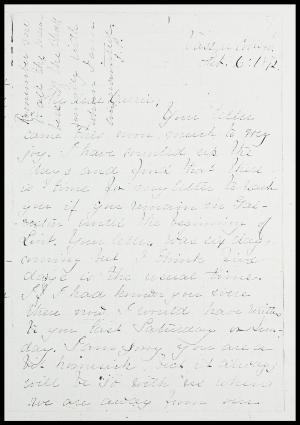 Feb. 6. 18
My dear
Your letter
came this morn, much to my
joy. I have counted up the
days and find that there
is time for my letter to reach
you if you remain in
until the beginning of
Lent. Your letter was six days
coming but I think
days is the usual time.
If I had known you were
there now I would have written
to you last Saturday or Sun-
day. I am sorry you are a
bit homesick, but it always
will be so with us when
we are away from our
Remember me
to all the
family with
whom I am